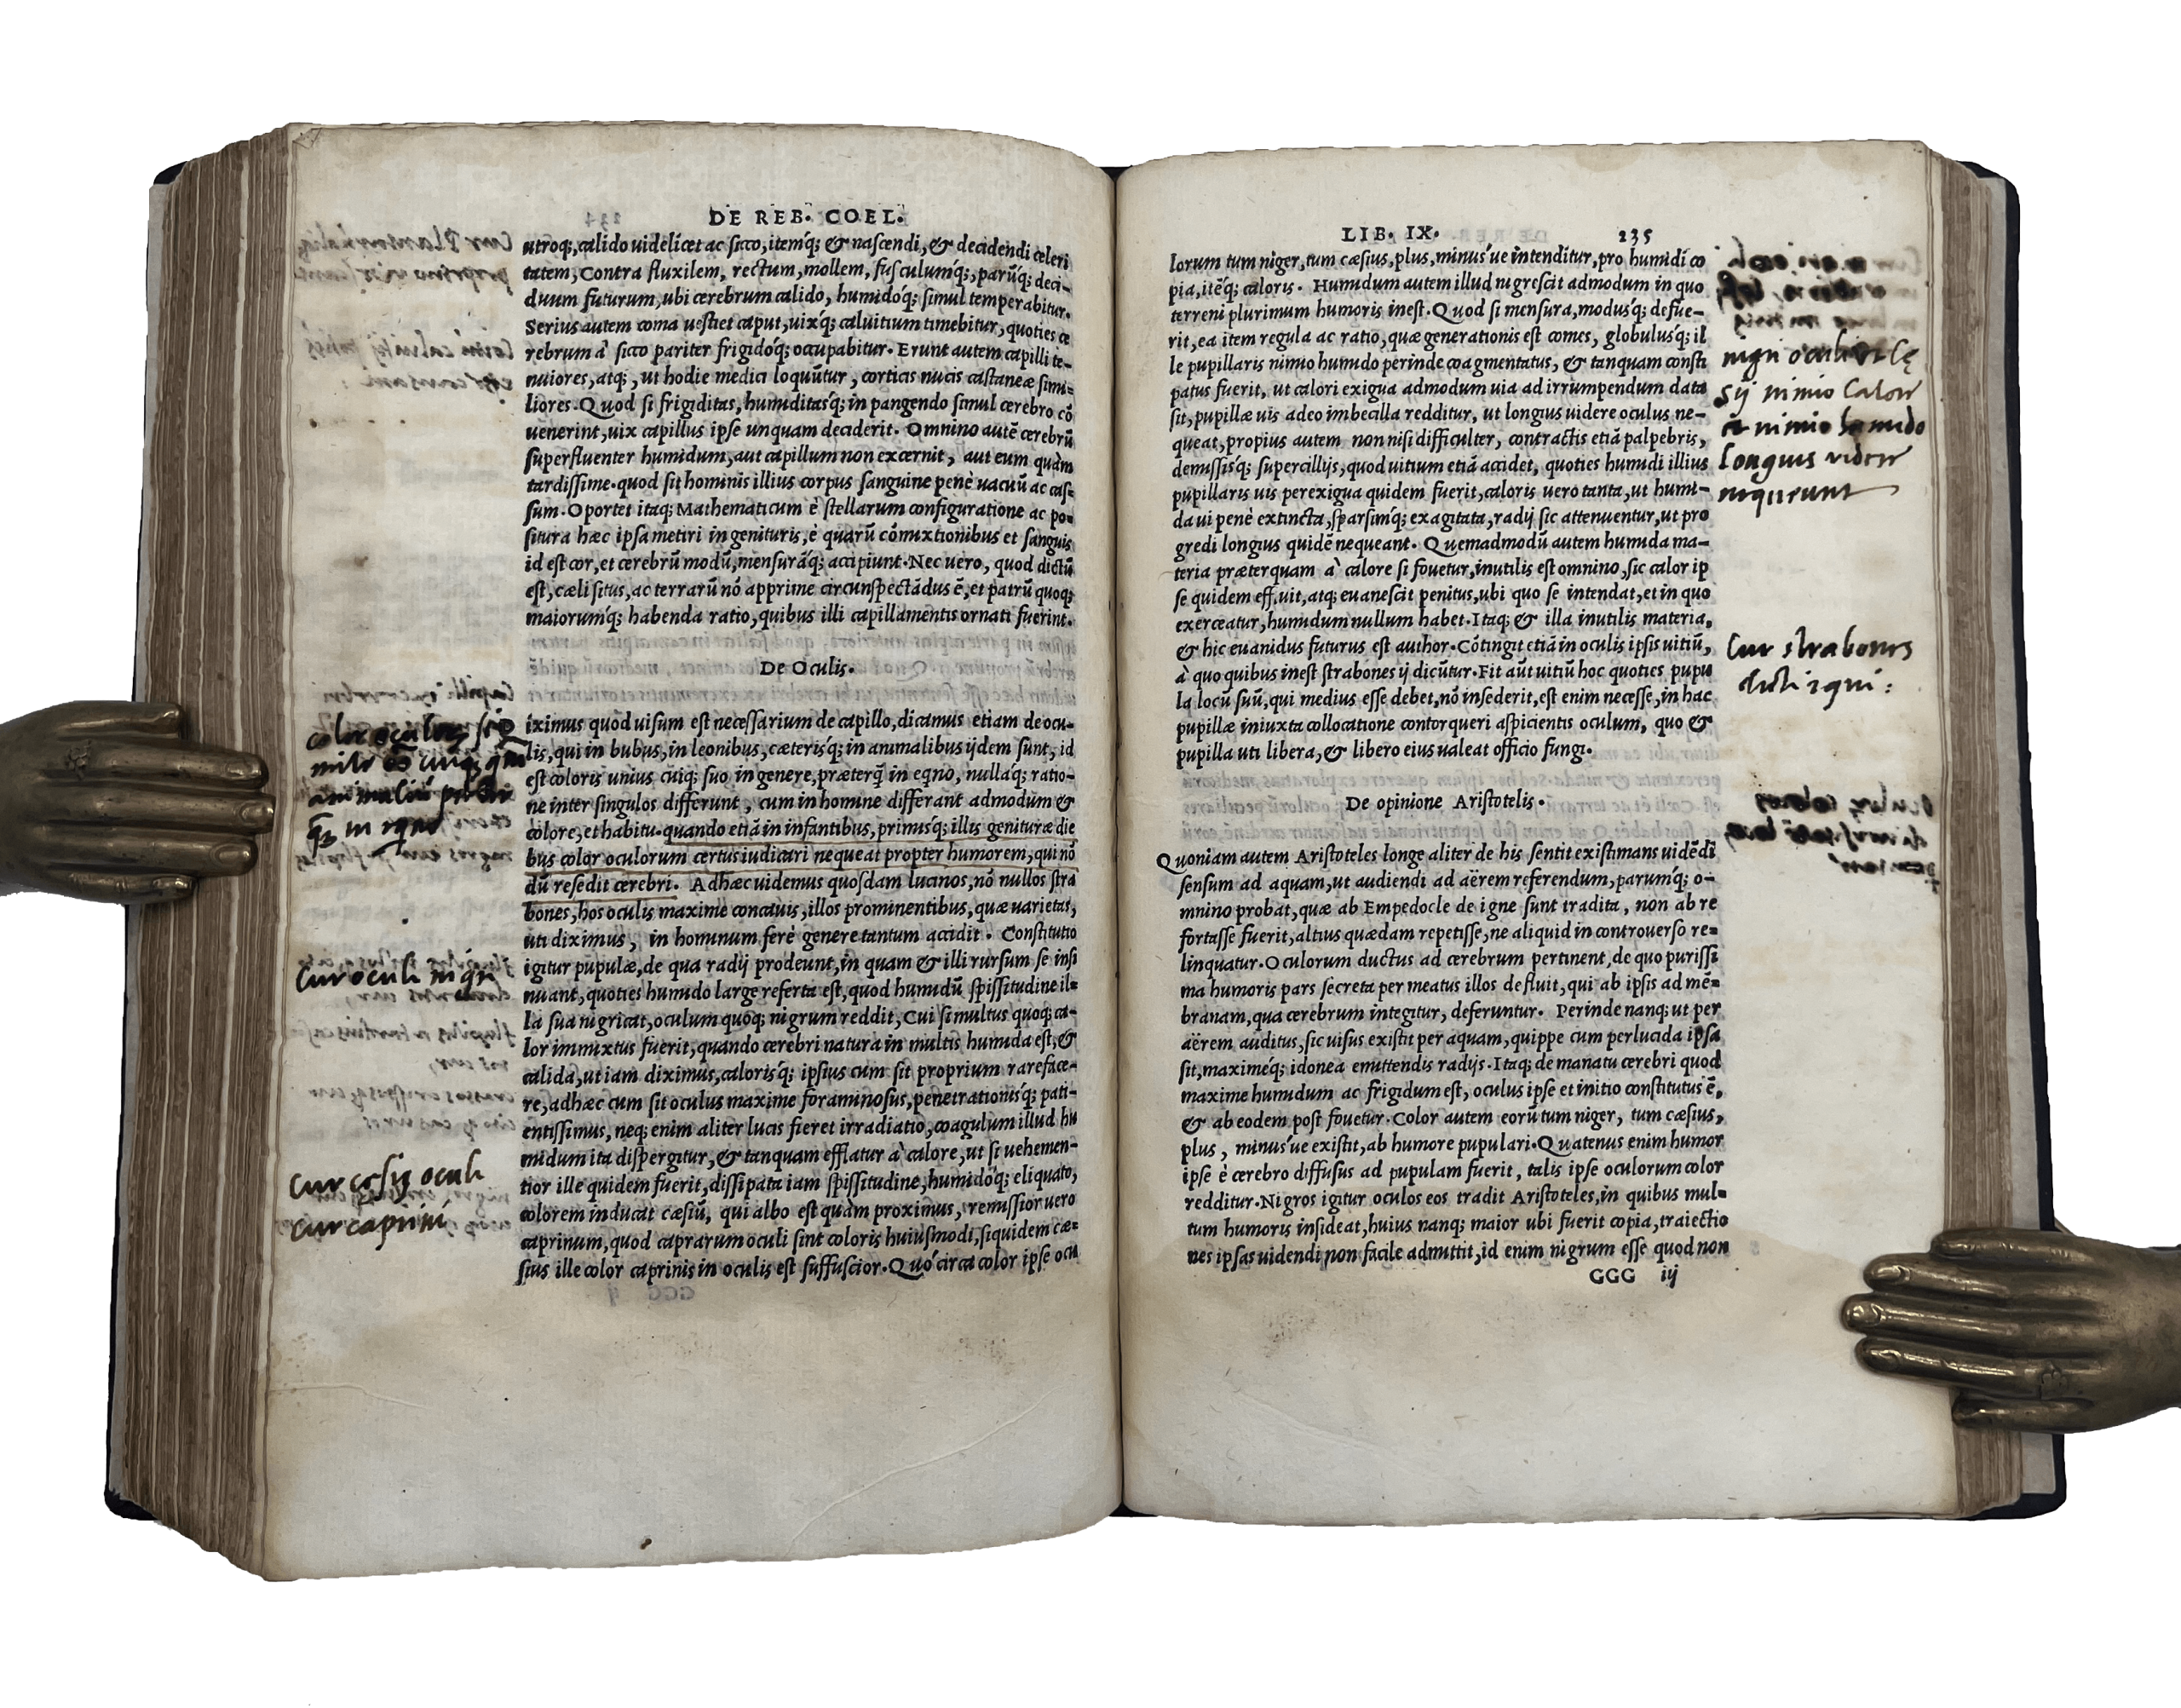 DE REB. COEL.
utroq;, calido uidelicet ac sicco, itemq́; & nascendi, & decidendi celeri
tatem, Contra fluxilem, rectum, mollem, fusculumq́;, parũq́; deci-
duum futurum, ubi cerebrum calido, humidóq́; simul temperabitur.
Serius autem coma uestiet caput, uixq́; caluitium timebitur, quoties ce
rebrum à sicco pariter frigidóq́; occupabitur. Erunt autem capilli te-
nuiores, atq;, ut hodie medici loquũtur, corticis nucis castaneæ simi-
liores. Quod si frigiditas, humiditasq́; in pangendo simul cerebro cõ
uenerint, uix capillus ipse unquam deciderit. Omnino autẽ cerebrũ
superfluenter humidum, aut capillum non excernit, aut eum quàm
tardissime. quod sit hominis illius corpus sanguine penè uacuũ ac cas-
sum. Oportet itaq; Mathematicum è stellarum configuratione ac po-
situra hæc ipsa metiri in genituris, è quarũ cõmixtionibus et sanguis
id est cor, et cerebrũ modũ, mensurãq́; accipiunt. Nec uero, quod dictũ
est, cæli situs, ac terrarũ nõ apprime circunspectãdus ẽ, et patrũ quoq;
maiorumq́; habenda ratio, quibus illi capillamentis ornati fuerint.
De Oculis.
iximus quod uisum est necessarium de capillo, dicamus etiam de ocu-
lis, qui in bubus, in leonibus, cæterisq́; in animalibus ijdem sunt, id
est coloris unius cuiq; suo in genere, præterq̃ in eqno, nullaq́; ratio-
ne inter singulos differunt, cum in homine differant admodum &
colore, et habitu. quando etiã in infantibus, primisq́; illis genituræ die
bus color oculorum certus iudicari nequeat propter humorem, qui nõ
dũ resedit cerebri. Adhæc uidemus quosdam lucinos, nõ nullos stra
bones, hos oculis maxime concauis, illos prominentibus, quæ uarietas,
uti diximus, in hominum ferè genere tantum accidit. Constitutio
igitur pupulæ, de qua radij prodeunt, in quam & illi rursum se insi
nuant, quoties humido large referta est, quod humidũ spissitudine il-
la sua nigricat, oculum quoq; nigrum reddit, Cui si multus quoq; ca-
lor immixtus fuerit, quando cerebri natura in multis humida est, &
calida, ut iam diximus, calorisq́; ipsius cum sit proprium rareface-
re, adhæc cum sit oculus maxime foraminosus, penetrationisq́; pati-
entissimus, neq; enim aliter lucis fieret irradiatio, coagulum illud hu
midum ita dispergitur, & tanquam efflatur à calore, ut si uehemen-
tior ille quidem fuerit, dissipata iam spissitudine, humidóq́; eliquato,
colorem inducat cæsiũ, qui albo est quàm proximus, remissior uero
caprinum, quod caprarum oculi sint coloris huiusmodi, siquidem cæ-
sius ille color caprinis in oculis est suffuscior. Quó circa color ipse ocu
color oculor,
q̃; in equo
Cur oculi nigri
Cur cesij oculi
cur caprini
LIB. IX. 235
lorum tum niger, tum cæsius, plus, minus´ue intenditur, pro humidi co
pia, itẽq́; caloris. Humidum autem illud nigrescit admodum in quo
terreni plurimum humoris inest. Quod si mensura, modusq́; defue-
rit, ea item regula ac ratio, quæ generationis est comes, globulusq́; il
le pupillaris nimio humido perinde coagmentatus, & tanquam consti
patus fuerit, ut calori exigua admodum uia ad irrumpendum data
sit, pupillæ uis adeo imbecilla redditur, ut longius uidere oculus ne-
queat, propius autem non nisi difficulter, contractis etiã palpebris,
demissisq́; supercilijs, quod uitium etiã accidet, quoties humidi illius
pupillaris uis perexigua quidem fuerit, caloris uero tanta, ut humi-
da ui penè extincta, sparsimq́; exagitata, radij sic attenuentur, ut pro
gredi longius quidẽ nequeant. Quemadmodũ autem humida ma-
teria præterquam à calore si fouetur, inutilis est omnino, sic calor ip
se quidem effluit, atq; euanescit penitus, ubi quo se intendat, et in quo
exerceatur, humidum nullum habet. Itaq; & illa inutilis materia,
& hic euanidus futurus est author. Cõtingit etiã in oculis ipsis uitiũ,
à quo quibus inest strabones ij dicũtur. Fit aũt uitiũ hoc quoties pupu
la locũ suũ, qui medius esse debet, nõ insederit, est enim necesse, in hac
pupillæ iniuxta collocatione contorqueri aspicientis oculum, quo &
pupilla uti libera, & libero eius ualeat officio fungi.
De opinione Aristotelis.
Quoniam autem Aristoteles longe aliter de his sentit existimans uidẽdi
sensum ad aquam, ut audiendi ad aërem referendum, parumq́; o-
mnino probat, quæ ab Empedocle de igne sunt tradita, non ab re
fortasse fuerit, altius quædam repetisse, ne aliquid in controuerso re-
linquatur. Oculorum ductus ad cerebrum pertinent, de quo purissi
ma humoris pars secreta per meatus illos defluit, qui ab ipsis ad mẽ-
branam, qua cerebrum integitur, deferuntur. Perinde nanq; ut per
aërem auditus, sic uisus existit per aquam, quippe cum perlucida ipsa
sit, maximéq́; idonea emittendis radijs. Itaq; de manatu cerebri quod
maxime humidum ac frigidum est, oculus ipse et initio constitutus ẽ,
& ab eodem post fouetur. Color autem eorũ tum niger, tum cæsius,
plus, minus´ue existit, ab humore pupulari. Quatenus enim humor
ipse è cerebro diffusus ad pupulam fuerit, talis ipse oculorum color
redditur. Nigros igitur oculos eos tradit Aristoteles, in quibus mul-
tum humoris insideat, huius nanq; maior ubi fuerit copia, traiectio
nes ipsas uidendi non facile admittit, id enim nigrum esse quod non
GGG iij
nigri oculi et cę
sij nimio calore
et nimio humido
longius videre
nequeunt
Cur strabones
dicti equi: